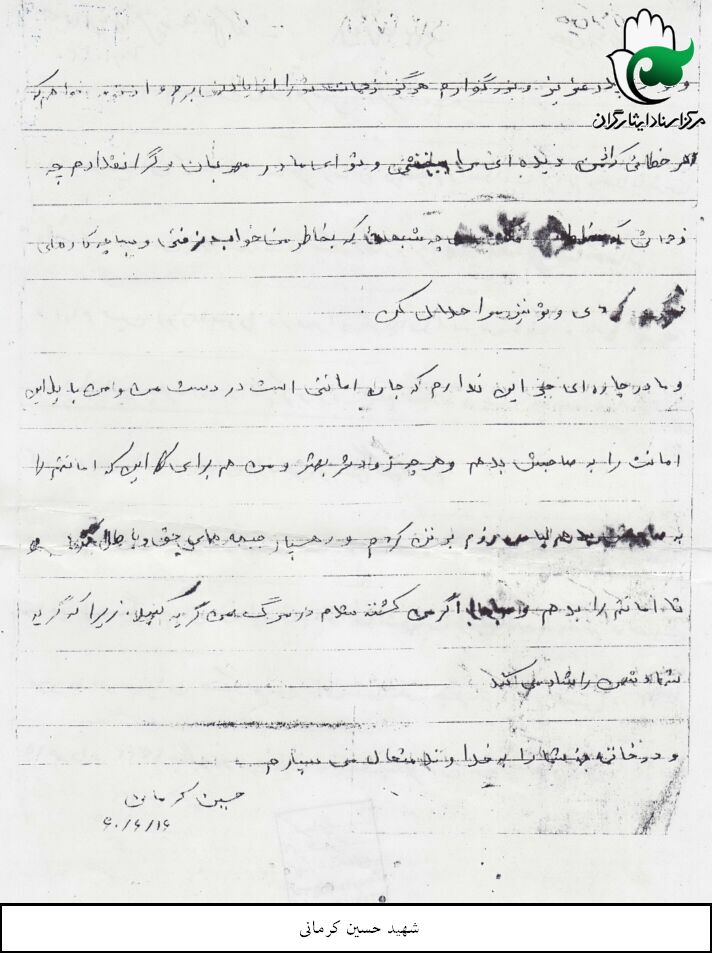 مرکز اسناد ایثارگران
و پدر عزیز و بزرگوارم هرگز زحمات تو را از یاد نمی برم و از تو می خواهم که
هر خطائی از من دیده ای مرا ببخشی و تو ای مادر مهربان و گرانقدارم چه
زحماتی که چه شبها که بخاطر من خوابید نرفتی و بپا چه کارهای
کردی و تو نیز مرا حلال کن .
و مادر چاره ای جز این ندارم که جان امانتی است در دست من و من باید این
امانت را به صاحبش بدهم و هر چه زودتر بهتر و من هم برای این که امانتم را
به صاحبش بدهم لباس رزم بر تن کردم و رهسپار جبهه های حق و باطل
تا امانتم را بدهم و اگر من کشته شدم در مرگ من گریه نکنید. زیرا که گریه
شما دشمن را شاد می کند
و در خاتمه شما را به خداوند متعال می سپارم
حسین کرمانی
۶۰/۶/۱۶
شهید حسین کرمانی